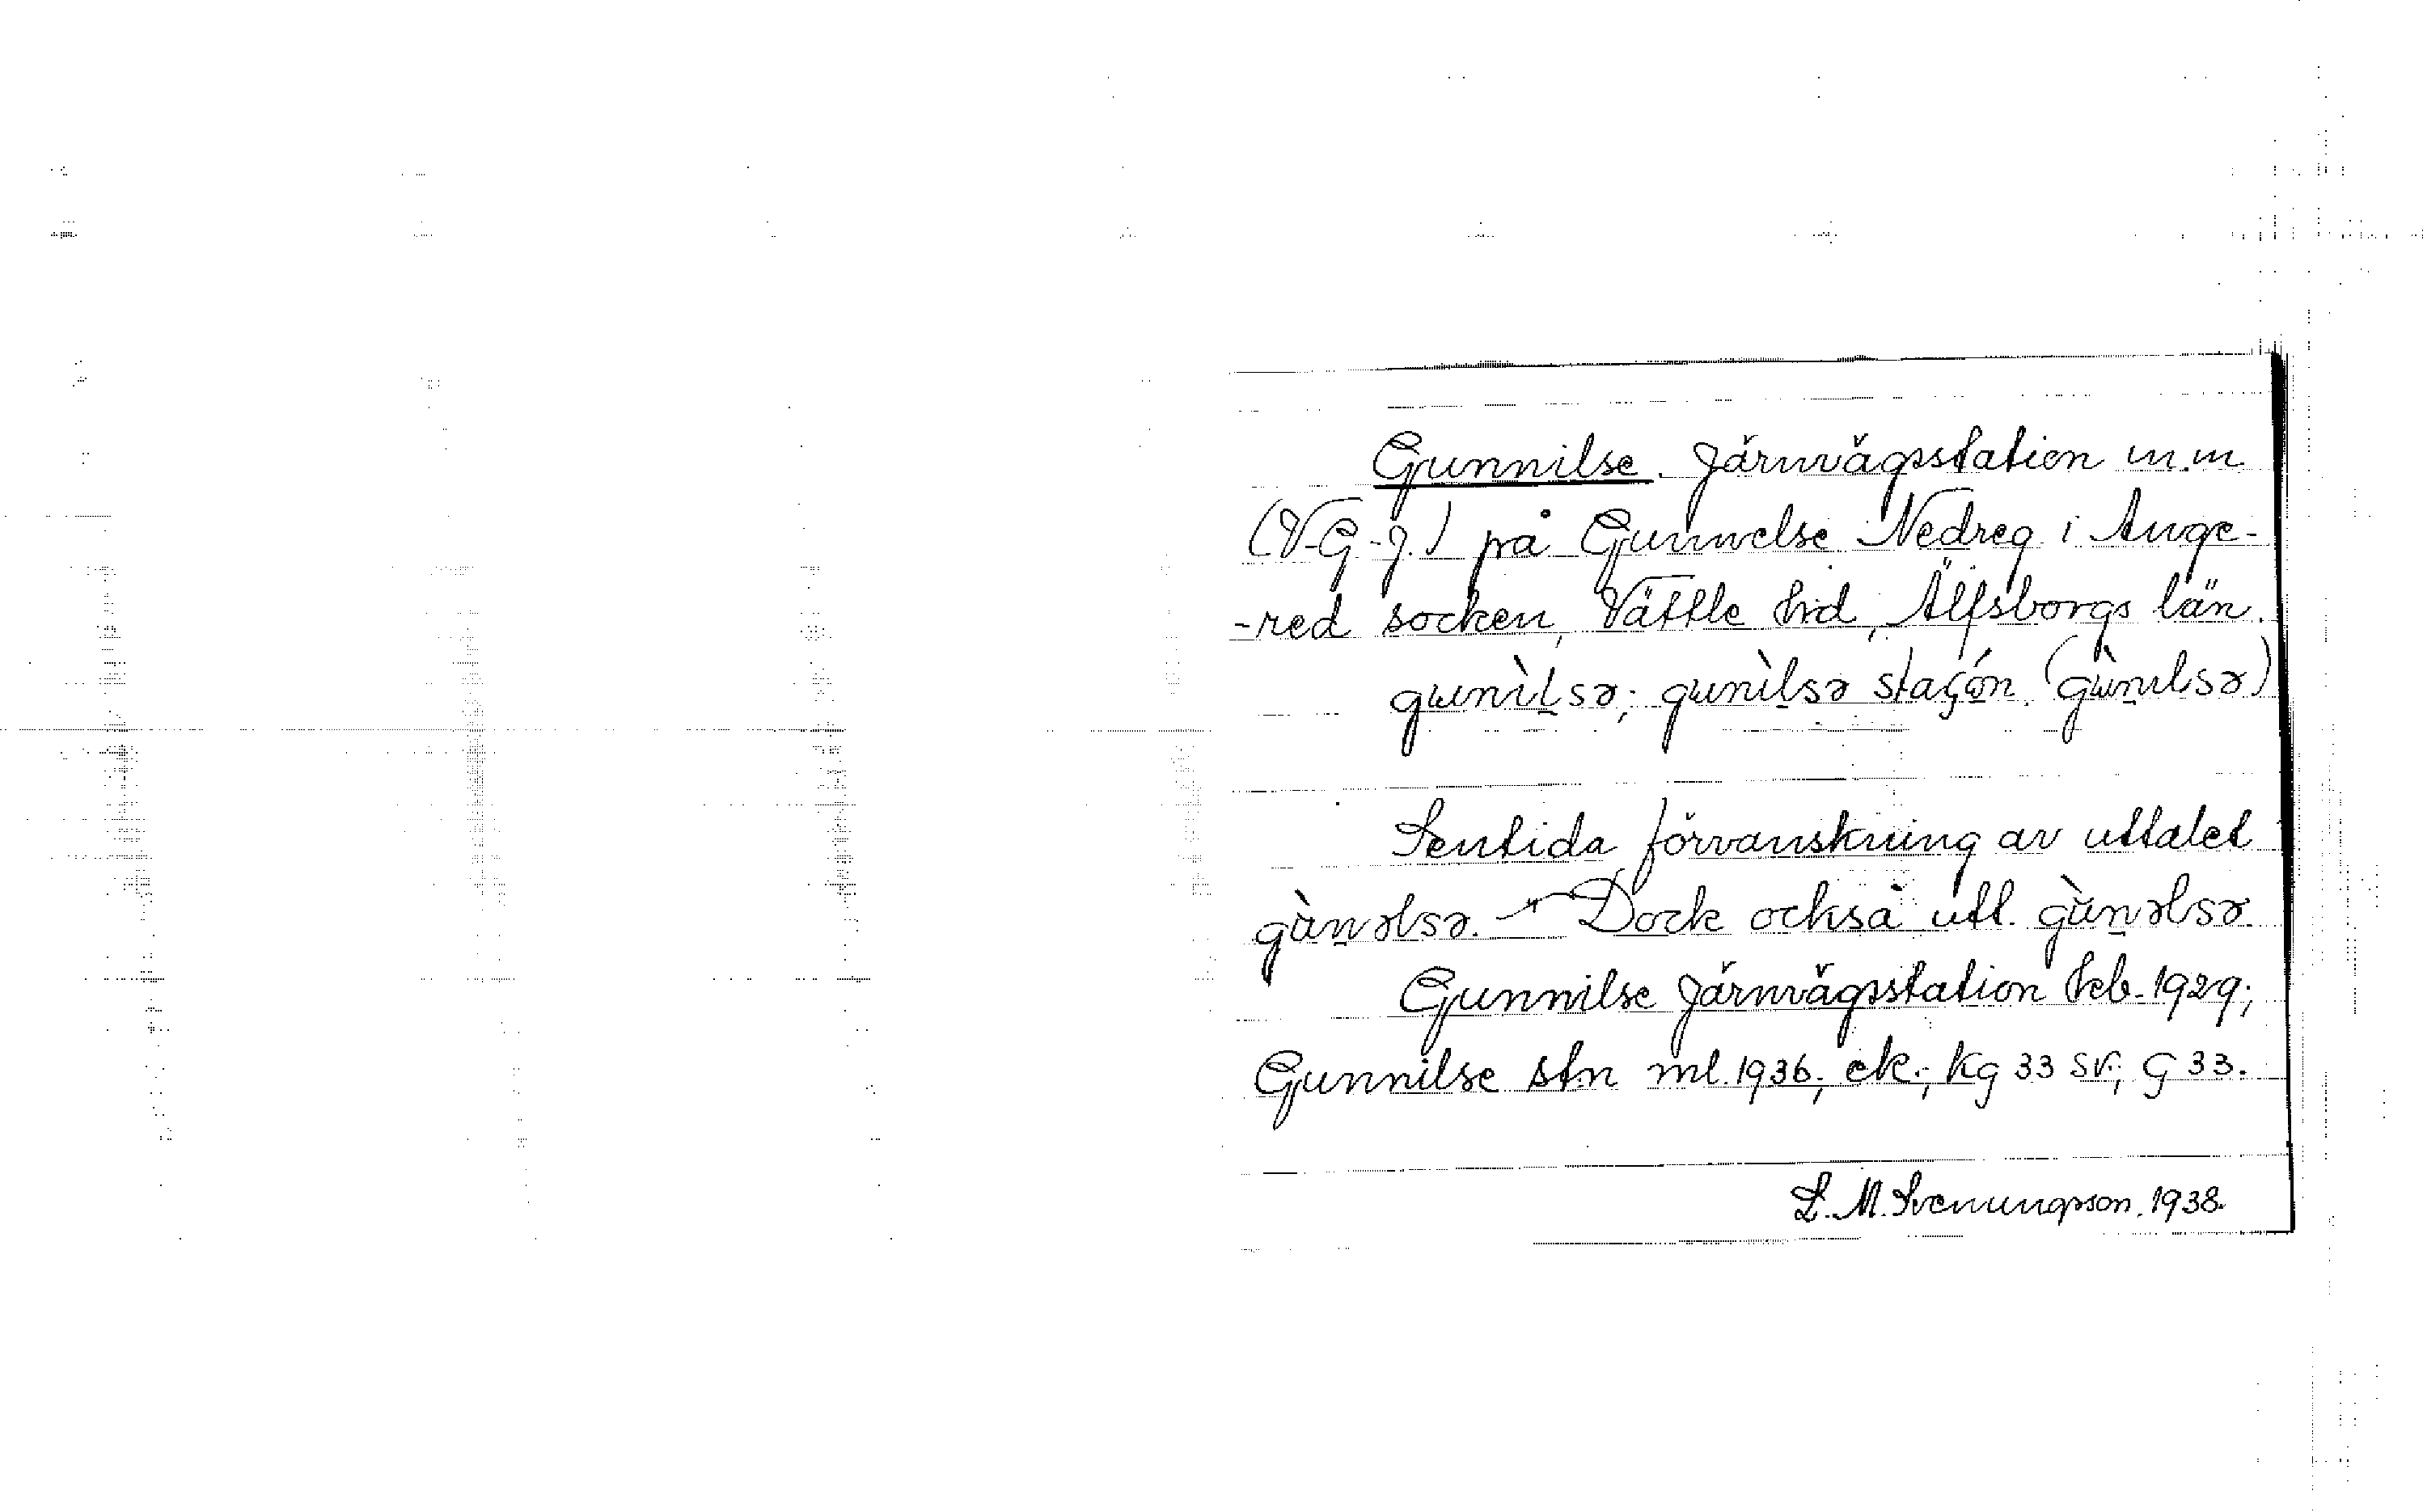 Gunnilse. Järnvägsstation m.m
(V-G-J.) på Gunnelse Nedreg. i Ange-
-red socken, Vättle hd, Älfsborgs län.
gunìlsə; gunìlsə staʃón. (gùnılsə)
Sentida förvanskning av uttalet
gùnəlsə. - Dock också utt. gùnəlsə.
Gunnilse Järnvägsstation kb-1929;
Gunnilse stn ml.1936; ek.; Kg 33 sv; G 33.
L. M. Svenungsson. 1938.